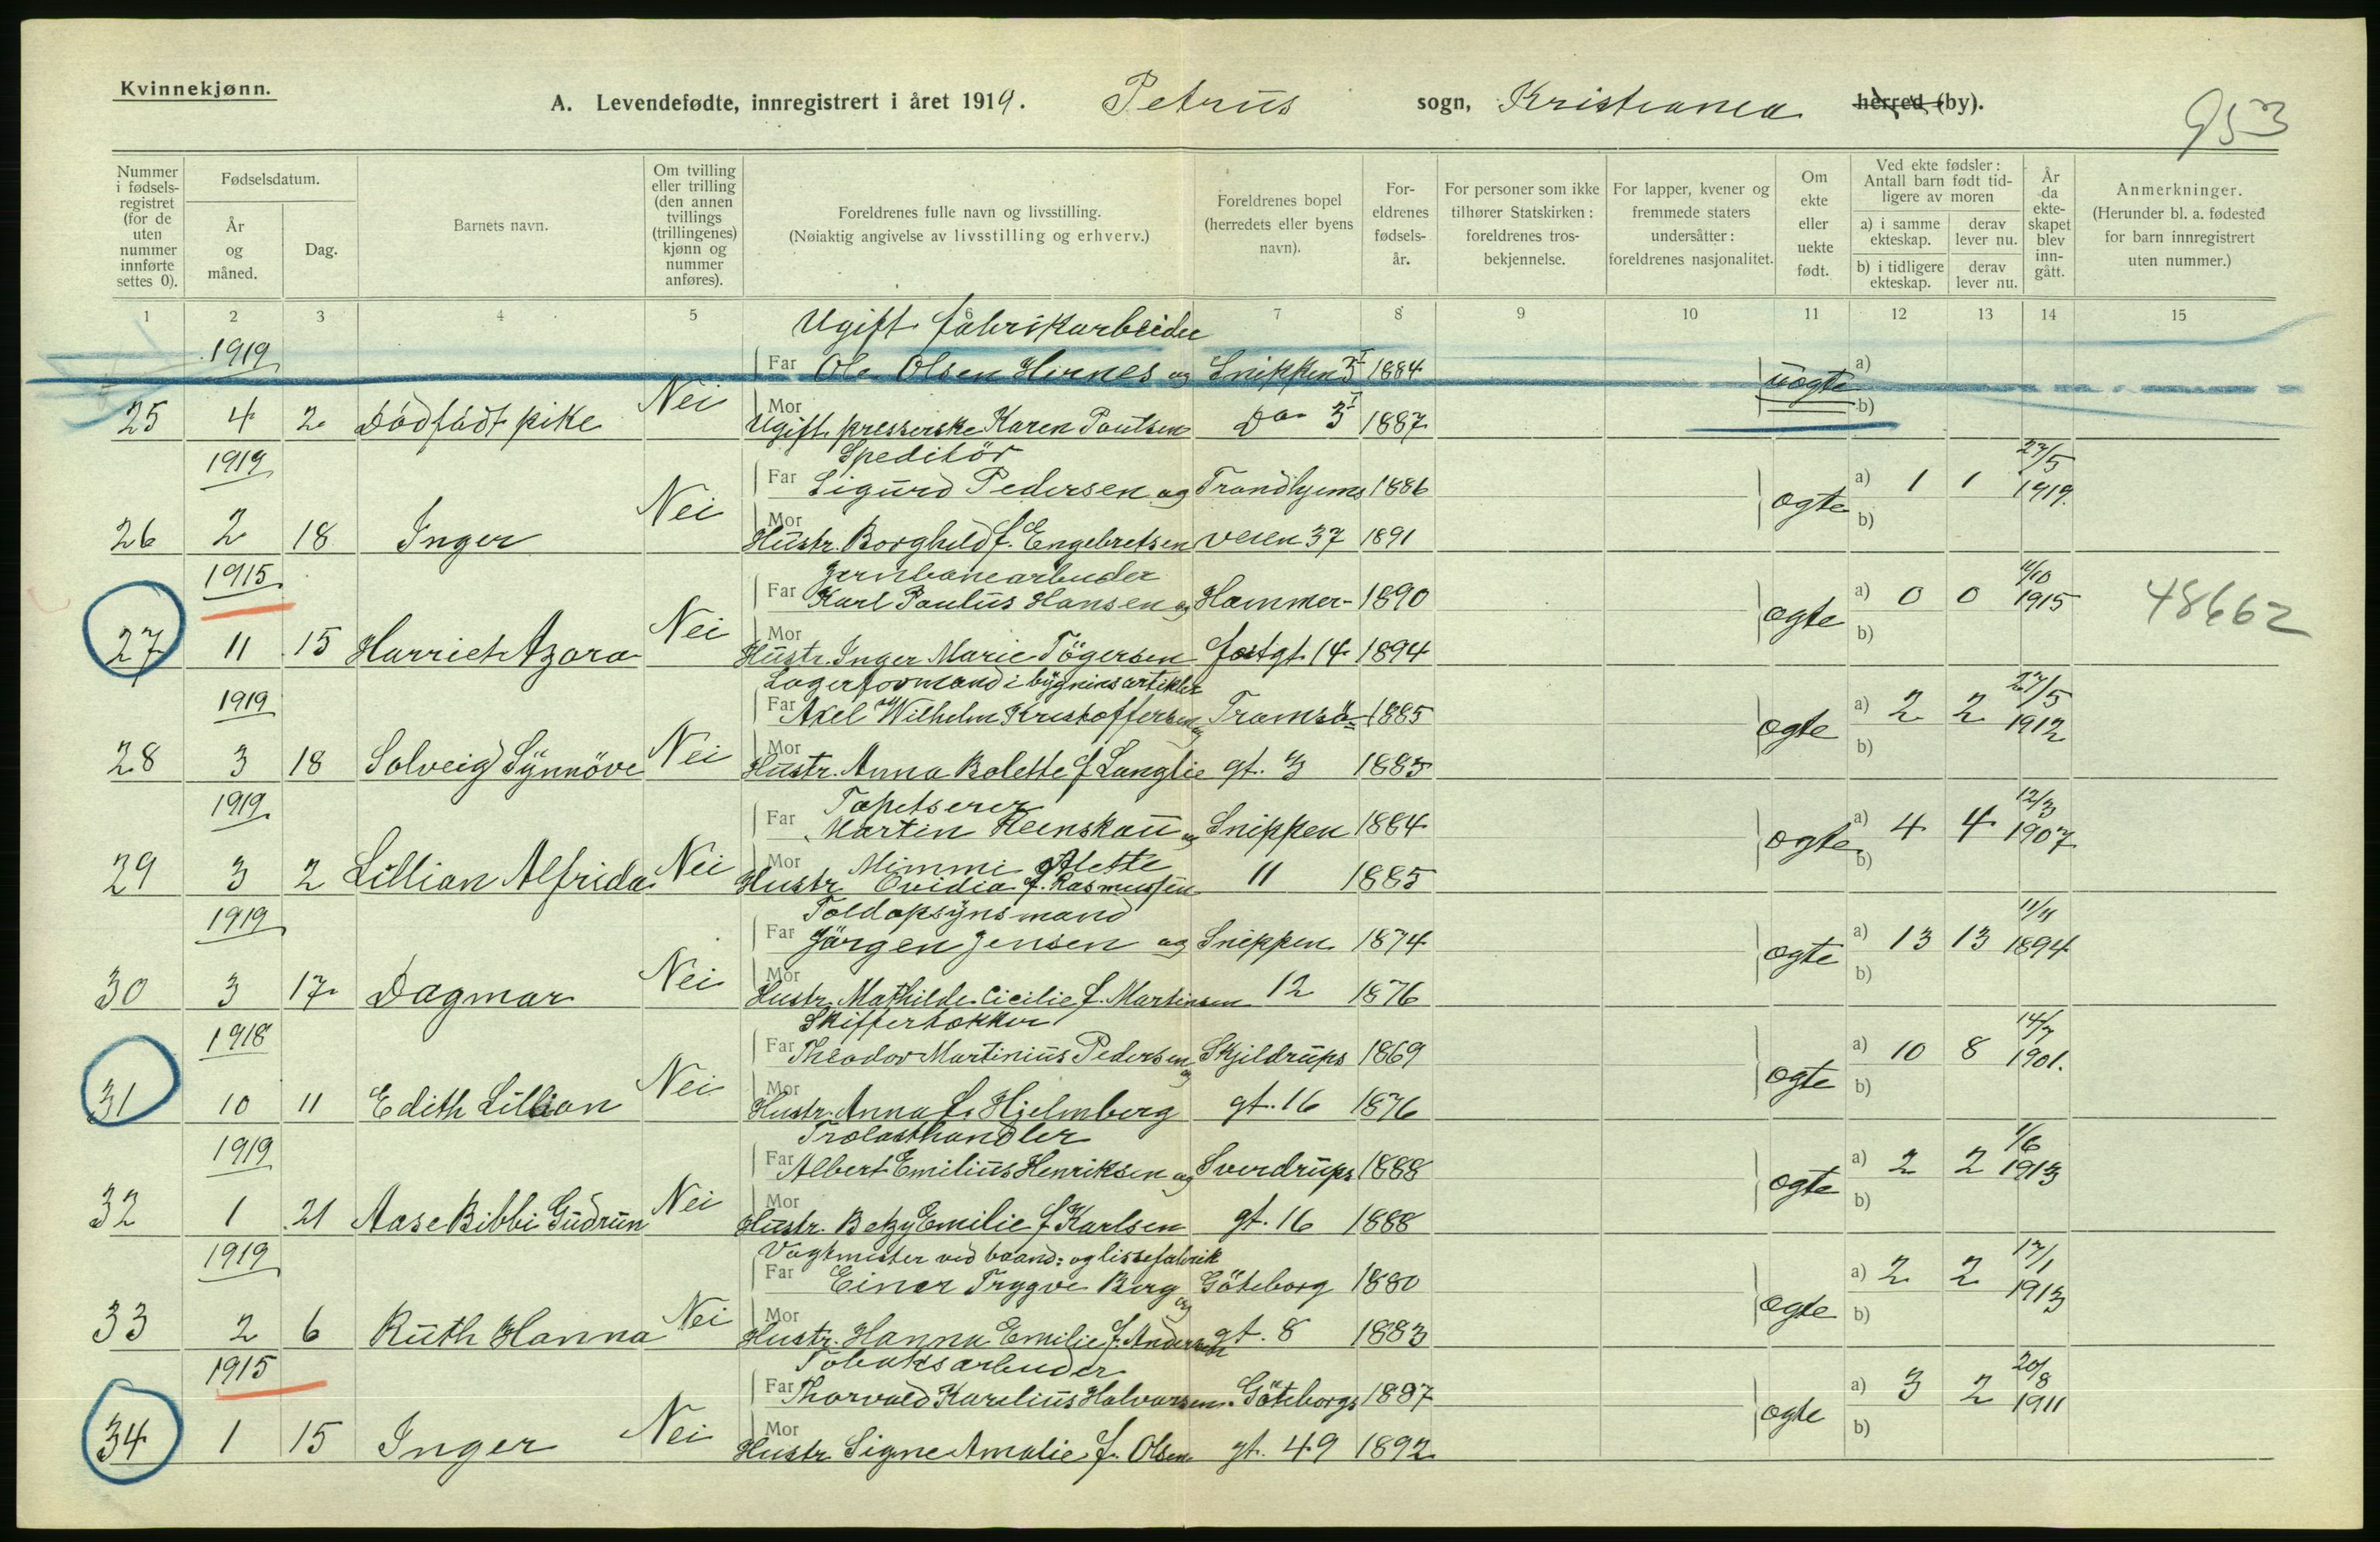 Kvinnekjønn.
A. Levendefødte, innregistrert i året 1919. Petrus sogn, Kristiania herred (by).
953
Nummer i fødselsregistret (for de uten nummer innførte settes 0).
Fødselsdatum.
År og måned.
Dag.
Barnets navn.
Om tvilling eller trilling (den annen tvillings (trillingenes) kjønn og nummer anføres).
Foreldrenes fulle navn og livsstilling.
(Nøiaktig angivelse av livsstilling og erhverv.)
Foreldrenes bopel (herredets eller byens navn).
Foreldrenes fødselsår.
For personer som ikke tilhører Statskirken: foreldrenes trosbekjennelse.
For lapper, kvener og fremmede staters undersåtter: foreldrenes nasjonalitet.
Om ekte eller uekte født.
Ved ekte fødsler: Antall barn født tidligere av moren
a) i samme ekteskap. derav lever nu.
b) i tidligere ekteskap. derav lever nu.
År da ekteskapet blev inngått.
Anmerkninger.
(Herunder bl. a. fødested for barn innregistrert uten nummer.)
1 2 3 4 5 7 8 9 10 11 12 13 14 15
Ugift fabrikarbeider
1919 Far Ole Olsen Hernes og Snippen 5 I 1884 uogte a)
25 4 2 Dödfödt pike Nei Mor Ugift presserske Karen Poulsen Do 3 I 1887 b)
Speditör
1919 Far Sigurd Pedersen og Trondhjems 1886 ogte a) 1 1 27/5 1919
26 2 18 Inger Nei Mor Hustr. Borghild f. Engebretsen veien 37 1891 b)
Jernbanearbeider
1915 Far Karl Paulus Hansen og Hammer- 1890 ogte a) 0 0 /10 1915 48662
27 11 15 Harriet Azora Nei Mor Hustr. Inger Marie Tögersen festgt. 14 1894 b)
Lagerformand i bygnins artikler
1919 Far Axel Wilhelm Kristoffersen og Tromsö- 1885 ogte a) 2 2 27/5 1912
28 3 18 Solveig Synnöve Nei Mor Hustr. Anna Bolette f Langlie gt. 1885 b)
Tapetserer
1919 Far Martin Reenskau og Snippen 1884 ogte a) 4 4 12/3 1907
Mimmi Alette
29 3 2 Lillian Alfrida Nei Mor Hustr Ovidia f. Rasmussen 11 1885 b)
Toldopsynsmand
1919 Far Jörgen Jensen og Snippen 1874 ogte a) 13 13 11/11 1894
30 3 17 Dagmar Nei Mor Hustr. Mathilde Cicilie f. Martinsen 12 1876 b)
Skiffertækker
1918 Far Theodor Martinius Pedersen og Skjildrups 1869 ogte a) 10 8 14/7 1901.
31 10 11 Edith Lillian Nei Mor Hustr. Anna f. Hjelmberg gt. 16 1876 b)
Trælasthandler
1919 Far Albert Emilius Henriksen og Sverdrups 1888 ogte a) 2 2 1/6 1913
32 1 21 Aase Bibbi Gudrun Nei Mor Hustr. Betzy Emilie f Karlsen gt. 16 1888 b)
Vagtmester ved baand: og lissefabrik
1919 Far Einar Trygve Berg og Göteborg 1880 ogte a) 2 2 17/1 1913
33 2 6 Ruth Hanna Nei Mor Hustr. Hanna Emilie f. Andersen gt. 8 1883 b)
Tobaksarbeider
1915 Far Thorvald Karelius Halvorsen. Göteborgs 1887 ogte a) 3 2 20/8 1911
34 1 15 Inger Nei Mor Hustr Signe Amalie f. Olsen gt. 49 1892 b)